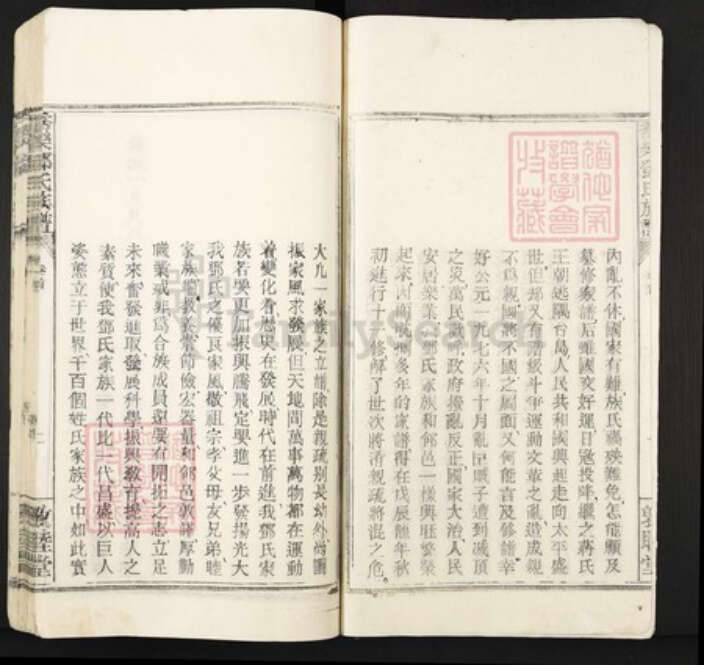 內亂不休國家有難族氏禍殃難免怎能顧及
墓修家譜后雖國交好運日寇投降繼之蔣氏
王朝逃隅台島人民共和國興起走向太平盛
世但却又有階級斗爭運動文革之亂造成親
不爲親國將不國之局面又何能言及修譜幸
好公元一九七六年十月亂國賊子遭到滅頂
之災萬民歡呼政府撥亂反正國家大治人民
安居樂業鄧氏家族和郃邑一樣興旺繁榮
起來因而耽擱多年的家譜得在戊辰龍年秋
初進行十修解了世次將淆親疏將混之危
大凡一家族之立譜除是親疏別長幼外尚圖
振家風求發展但天地間萬事萬物都在運動
着變化着歷史在發展時代在前進我鄧氏家
族若要更加振興騰飛定要進一步發揚光大
我鄧氏之優良家風敬祖宗孝父母友兄弟睦
家族聰教養當節儉宏器量和郃邑敦譯厚勤
職業戒非爲合族成員須要有開拓之志立足
未來奮發進取發展科學振興教育提高人之
素質使我鄧氏家族一代比一代昌盛以巨人
姿態立于世界千百個姓氏家族之中如此實
敦睦堂
敦睦堂
鄧氏族譜
FamilySearch